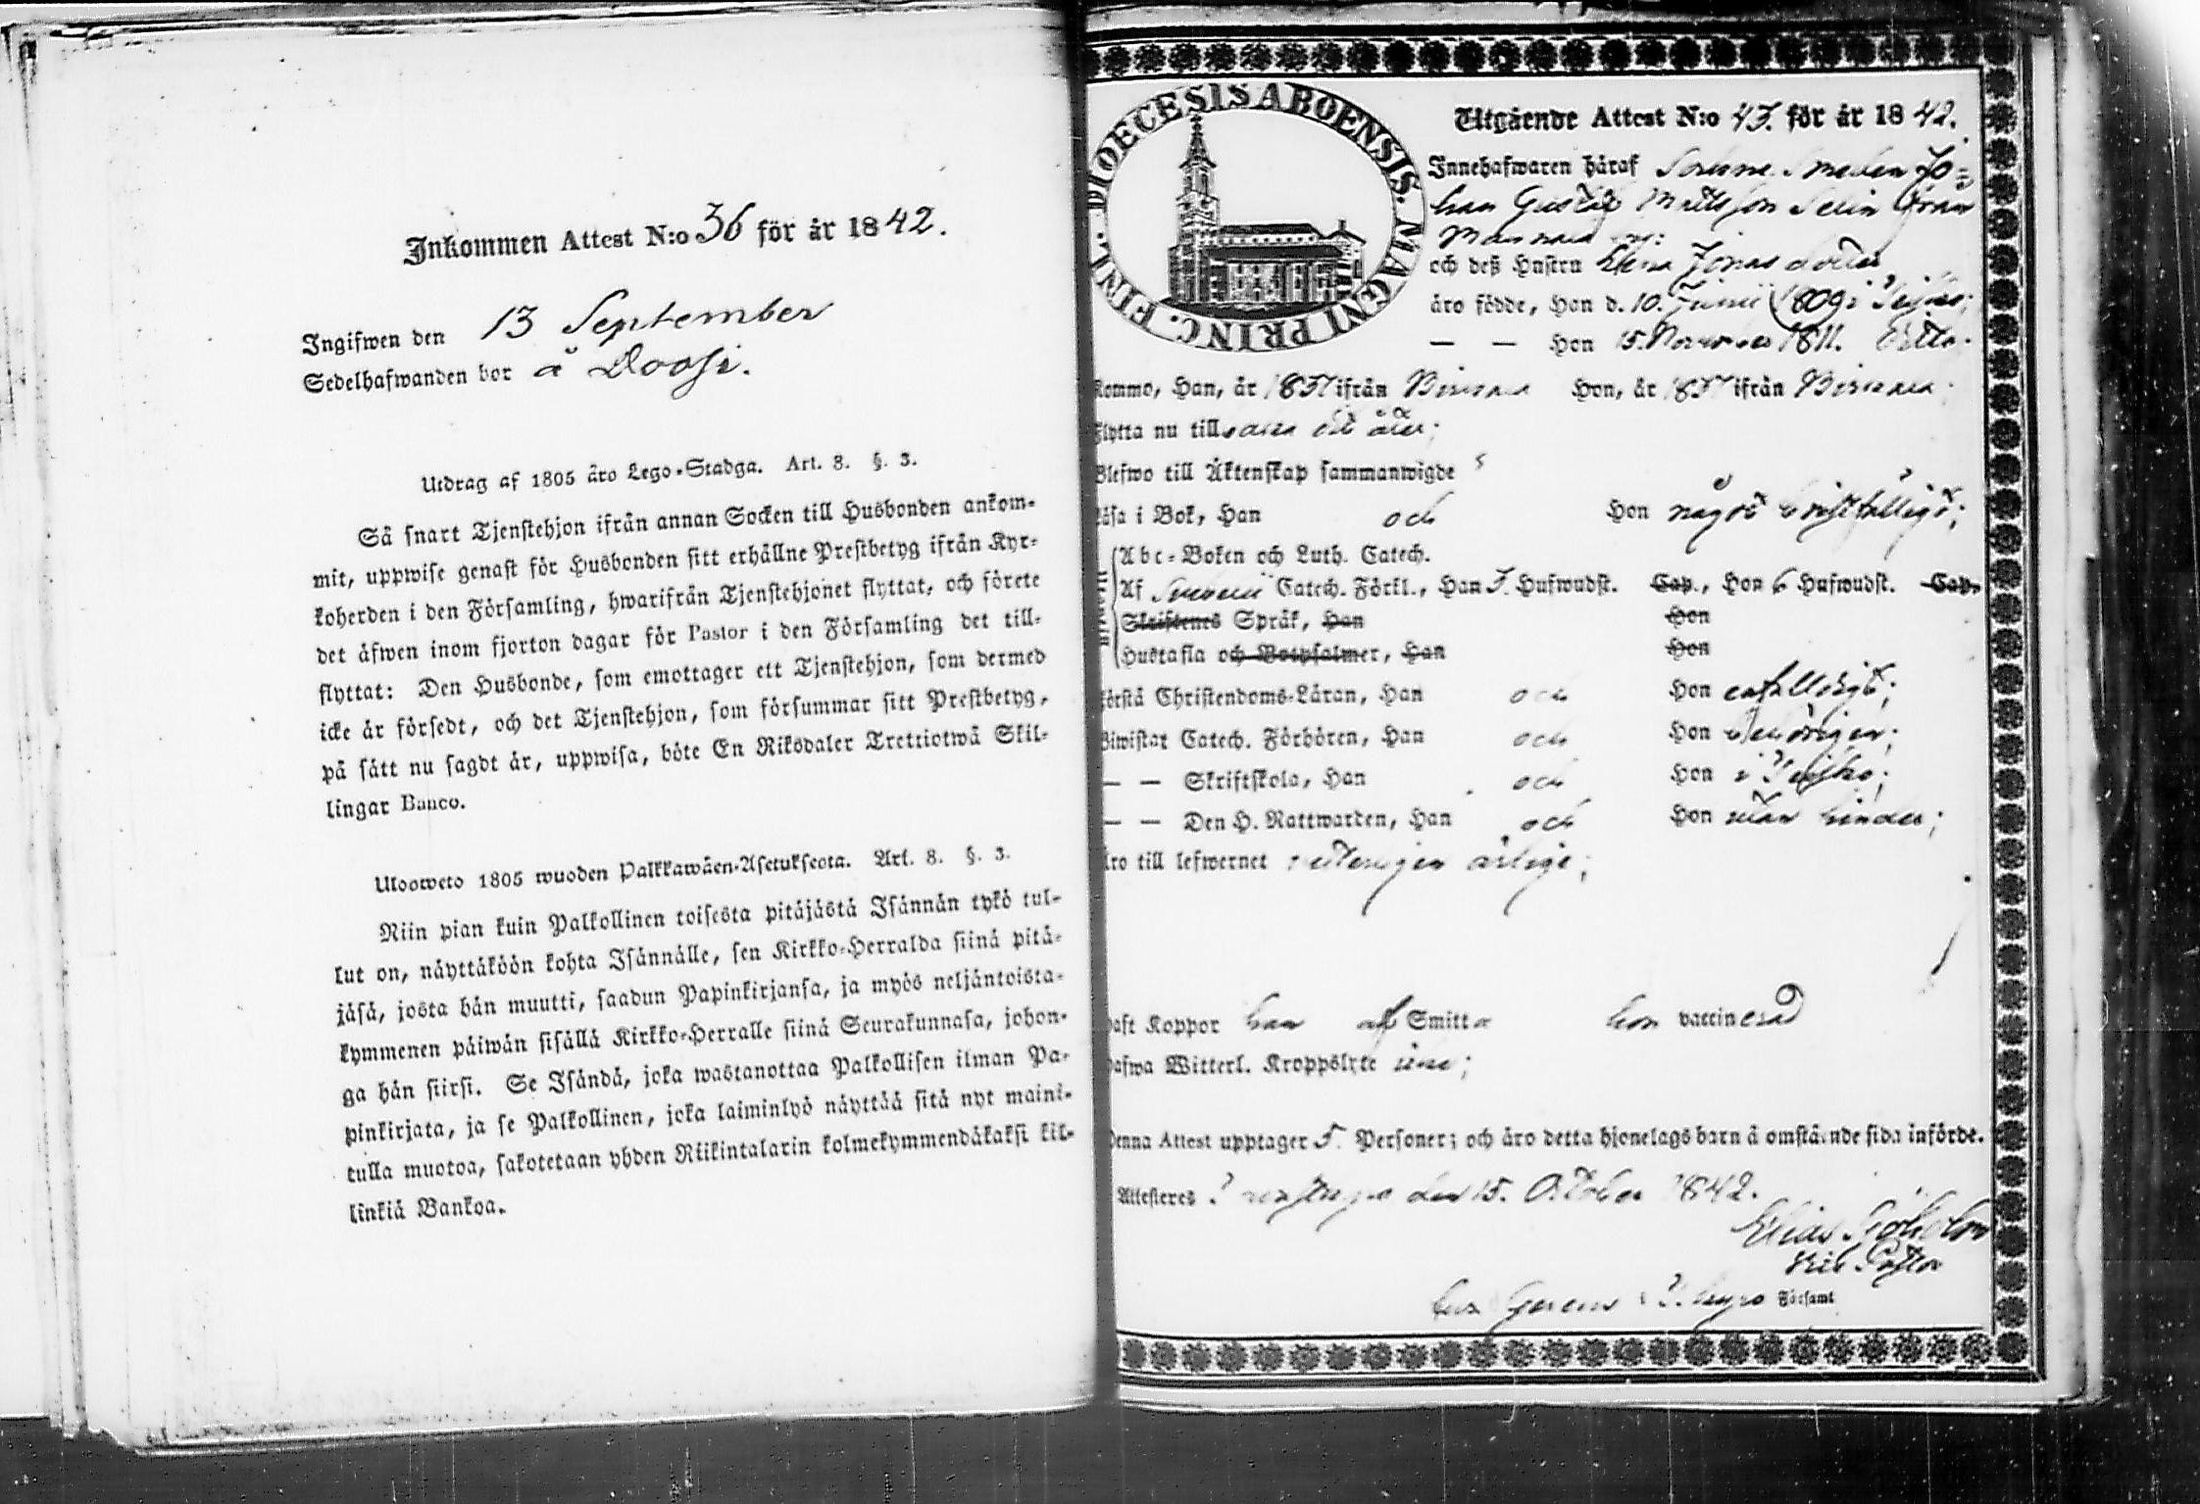 Inkommen Attest N:o 36 för år 1842.
Ingifwen den 13 September
Sedelhafwanden bor å
Utdrag af 1805 års Lego-Stadga. Art. 8. §. 3.
Så snart Tjenstehjon ifrån annan Socken till Husbonden ankom-
mit, uppwise genast för Husbonden sitt erhållne Prestbetyg ifrån Kyr-
koherden i den Församling, hwarifrån Tjenstehjonet flyttat, och förete
det äfwen inom fjorton dagar för Pastor i den Församling det till-
flyttat: Den Husbonde, som emottager ett Tjenstehjon, som dermed
icke är försedt, och det Tjenstehjon, som försummar sitt Prestbetyg,
på sätt nu sagdt är, uppwisa, böte En Riksdaler Trettiotwå Skil-
lingar Banco.
Ulosweto 1805 wuoden Palkkawäen-Asetuksesta. Art. 8. §. 3.
Niin pian kuin Palkollinen toisesta pitäjästä Isännän tykö tul-
lut on, näyttäköön kohta Isännälle, sen Kirkko-Herralda siinä pitä-
jäsä, josta hän muutti, saadun Papinkirjansa, ja myös neljäntoista-
kymmenen päiwän sisällä Kirkko-Herralle siinä Seurakunnasa, johon-
ga hän siirsi. Se Isändä, joka wastanottaa Palkollisen ilman Pa-
pinkirjata, ja se Palkollinen, joka laiminlyö näyttää sitä nyt maini-
tulla muotoa, sakotetaan yhden Riikintalarin kolmekymmendäkaksi kil-
linkiä Bankoa.
DIOECESIS ABOENSIS. MAGNI PRINC. FINL.
Utgående Attest N:o 43. för år 1842.
Innehafwaren häraf Sockne Smeden Jo=
han Gustaf Mattsson
och deß Hustru Jonas dotter
äro födde, Han d. 10. Junii 1809 i
— — Hon 15. November 1811.
Kommo, Han, år 1837 ifrån Hon, år 1837 ifrån
Flytta nu till
Blefwo till Äktenskap sammanwigde
Läsa i Bok, Han och Hon något bristfälligt;
Abc-Boken och Luth. Catech.
Af Catech. Förkl., Han 5. Hufwudst. Cap., Hon 6 Hufwudst. Cap.
Skriftenes Språk, Han Hon
Hustafla och Botpsalmer, Han Hon
Förstå Christendoms-Läran, Han och Hon enfalldigt;
Biwistat Catech. Förhören, Han och Hon
— — Skriftskola, Han och Hon i
— — Den H. Nattwarden, Han och Hon utan hinder;
Äro till lefwernet ärlige;
Haft Koppor han af Smitta hon vaccinerad
Hafwa Witterl. Kroppslyte
Denna Attest upptager 5. Personer; och äro detta hjonelags barn å omstående sida införde.
Attesteres den 15. October 1842.
Elias
Vice Pastor
Församl.